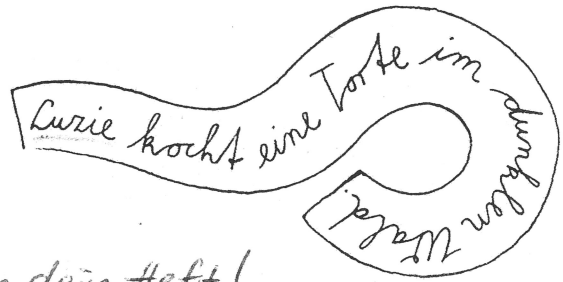 Luzie kocht eine Torte im dunklen Wald.
dein Heft!